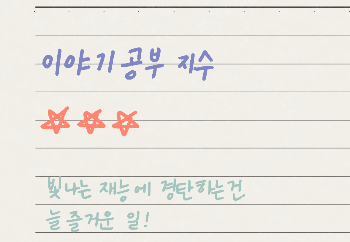 이야기공부 지수
빛나는 재능에 경탄하는건
늘 즐거운 일!